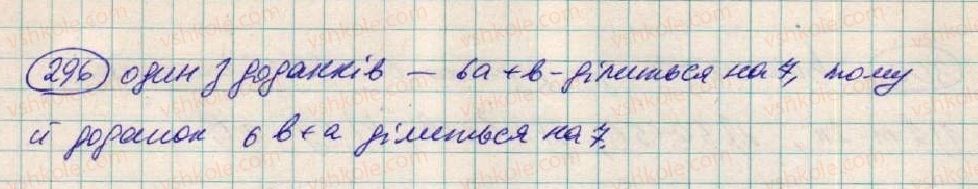 296 один з доданків — 6a + b - ділиться на 7, тому
й доданок 6b + a ділиться на 7.